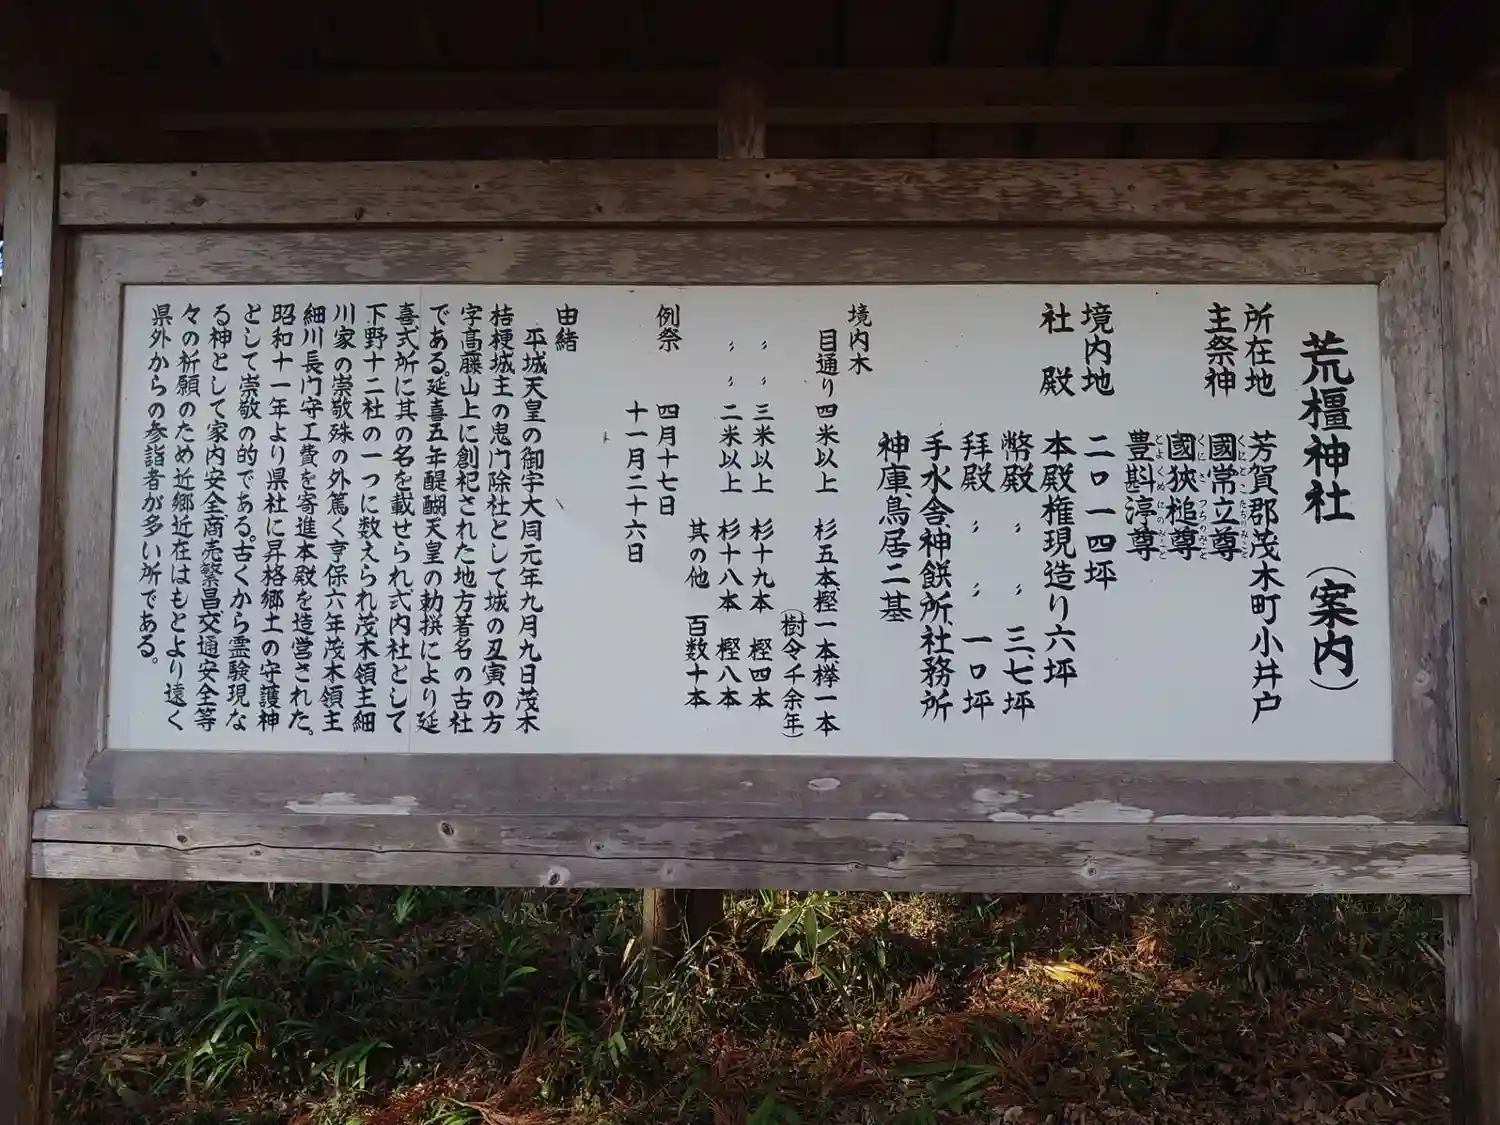 荒橿神社（案内）
所在地　芳賀郡茂木町小井戸
主祭神　國常立尊
くにとこたちのみこと
國狹槌尊
くにさづちのみこと
豊斟渟尊
とよくめにのみこと
境内地　二〇一四坪
社　殿　本殿権現造り六坪
幣殿　〃　〃　三、七坪
拝殿　〃　〃　一〇坪
手水舎、神饌所、社務所
神庫、鳥居二基
境内木
目通り四米以上　杉五本、樫一本欅一本
（樹令千余年）
〃　〃　三米以上　杉十九本　樫四本
〃　〃　二米以上　杉十八本　樫八本
其の他　百数十本
例祭　四月十七日
十一月二十六日
由緒
平城天皇の御宇大同元年九月九日茂木
桔梗城主の鬼門除社として城の丑寅の方
字高藤山上に創祀された地方著名の古社
である。延喜五年醍醐天皇の勅撰により延
喜式所に其の名を載せられ式内社として
下野十二社の一つに数えられ茂木領主細
川家の崇敬殊の外篤く享保六年茂木領主
細川長門守工費を寄進本殿を造営された。
昭和十一年より県社に昇格郷土の守護神
として崇敬の的である。古くから霊験現な
る神として家内安全商売繁昌交通安全等
々の祈願のため近郷近在はもとより遠く
県外からの参詣者が多い所である。